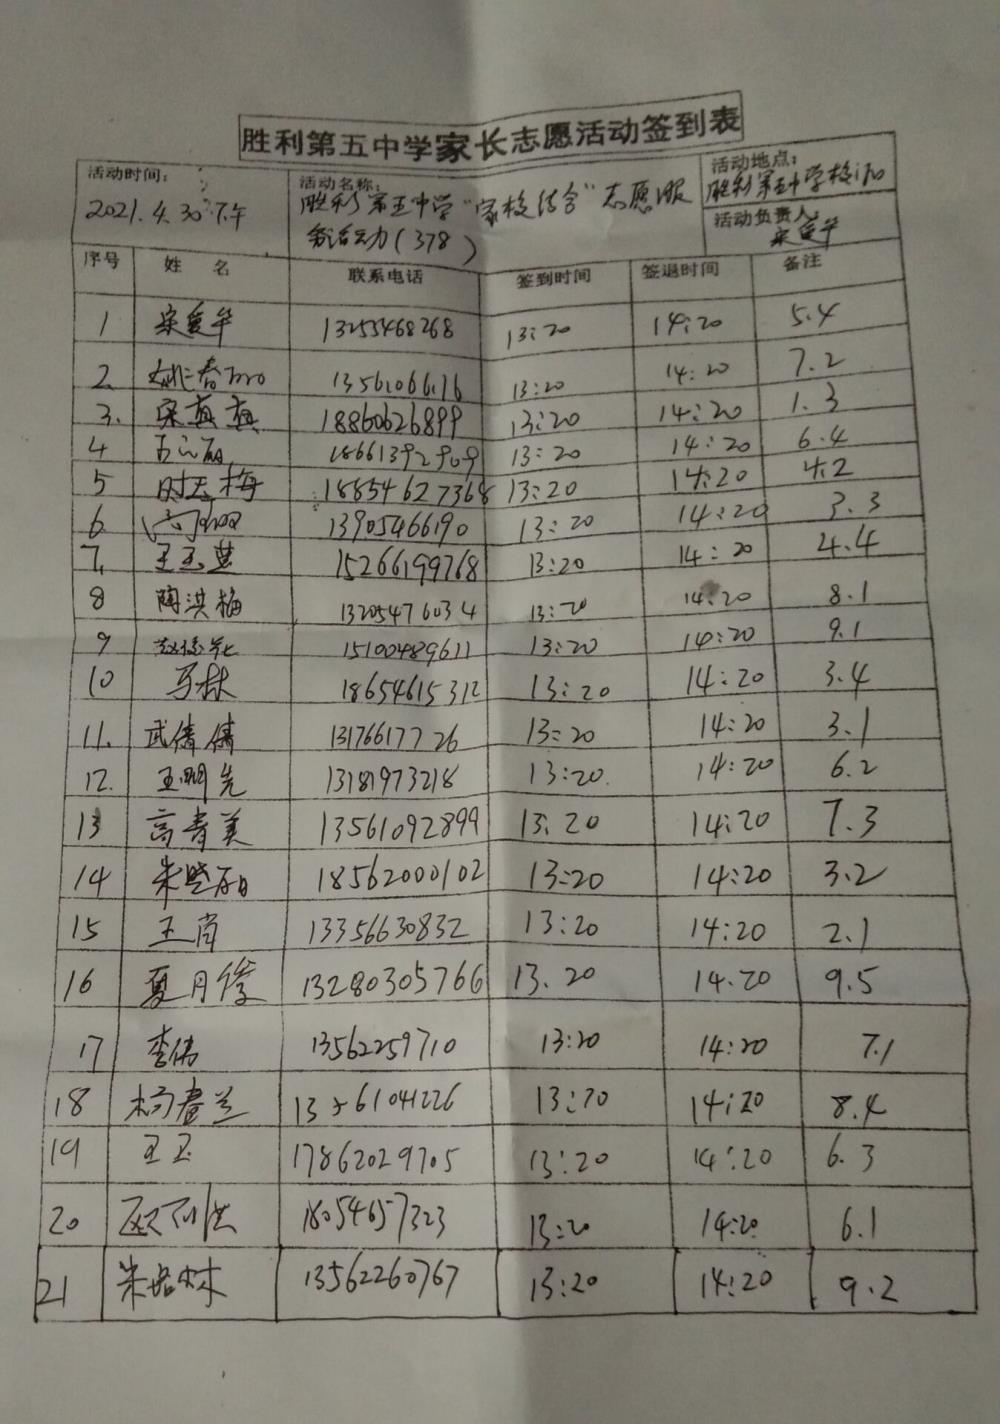 胜利第五中学家长志愿活动签到表
活动时间:
2021.4.30下午
活动名称:
胜利第五中学"家校结合"志愿服
务活动(378)
活动地点:
胜利第五中学校门口
活动负责人:
宋爱华
序号 姓名 联系电话 签到时间 签退时间 备注
1 宋爱华 13255468268 13:20 14:20 5.4
2 姚春 13561066116 13:20 14:20 7.2
3. 宋真真 18860626899 13:20 14:20 1.3
4 18661392909 13:20 14:20 6.4
5 时天梅 18854627368 13:20 14:20 4.2
6 13905466190 13:20 14:20 3.3
7. 王玉 15266199768 13:20 14:20 4.4
8 陶洪梅 13205476034 13:20 14:20 8.1
9 15100489611 13:20 14:20 9.1
10 马林 18654615312 13:20 14:20 3.4
11. 武倩倩 13176617726 13:20 14:20 3.1
12. 王明先 13181973218 13:20. 14:20 6.2
13 高青美 13561092899 13:20 14:20 7.3
14 朱晓丽 18562000102 13:20 14:20 3.2
15 王肖 13356630832 13:20 14:20 2.1
16 夏月俊 13280305766 13.20 14.20 9.5
17 李伟 13562259710 13:20 14:20 7.1
18 杨春兰 13561041226 13:20 14:20 8.4
19 王玉 17862029705 13:20 14:20 6.3
20 18054657323 13:20 14:20 6.1
21 朱培林 13562260767 13:20 14:20 9.2